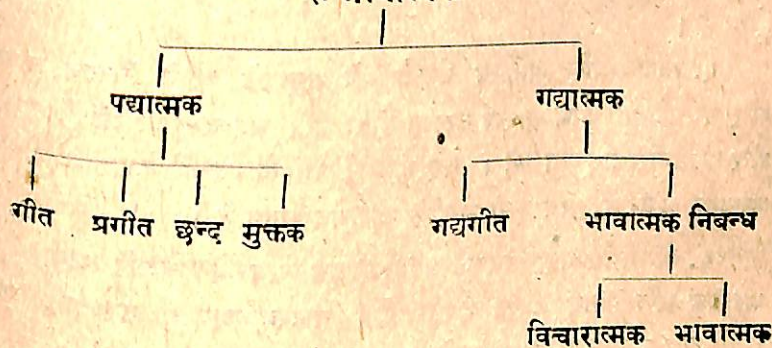 पद्यात्मक गद्यात्मक
गीत प्रगीत छन्द मुक्तक गद्यगीत भावात्मक निबन्ध
विचारात्मक भावात्मक